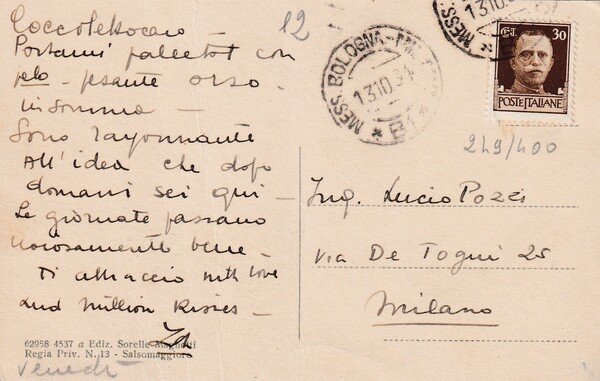 Coccolettocaro -
Portami paletot con
pelo - pesante orso -
insomma -
Sono rayonnante
All'idea che dopo
domani sei qui -
Le giornate passano
noiosamente bene -
Ti abbraccio with love
and million kisses -
62958 4537 a Ediz. Sorelle Magnotti
Regia Priv. N. 13 - Salsomaggiore
Venerdì
12
MESS. BOLOGNA-MILANO
13.10.34
* B1 *
MESS.
13.10.3
CT. 30
POSTE ITALIANE
249/400
Ing. Lucio Pozzi
Via De Togni 25
Milano